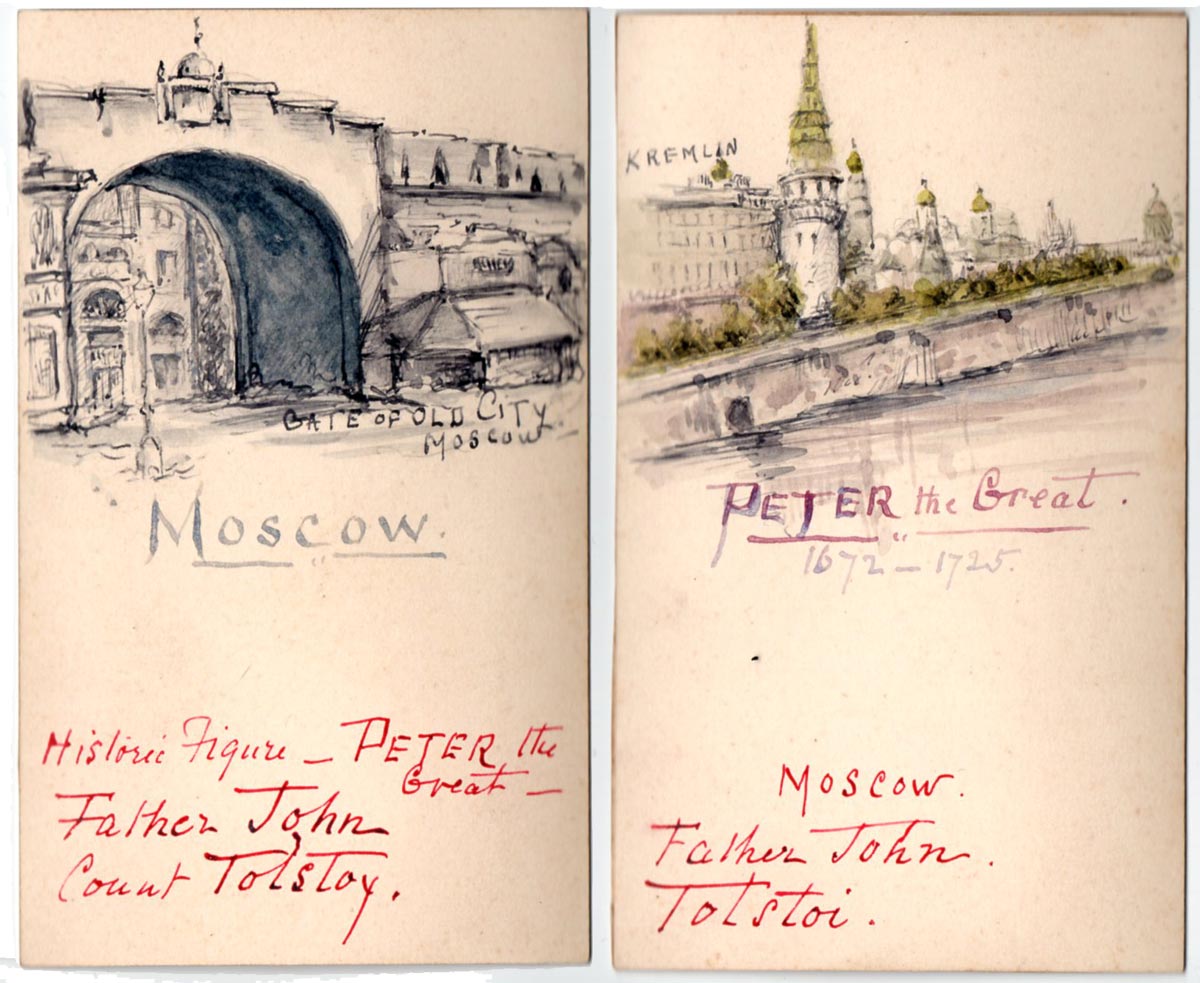 GATE OF OLD CITY
MOSCOW
MOSCOW.
Historic Figure – PETER the
Great –
Father John
Count Tolstoy.
KREMLIN
PETER the Great.
1672 – 1725.
MOSCOW.
Father John.
Tolstoi.